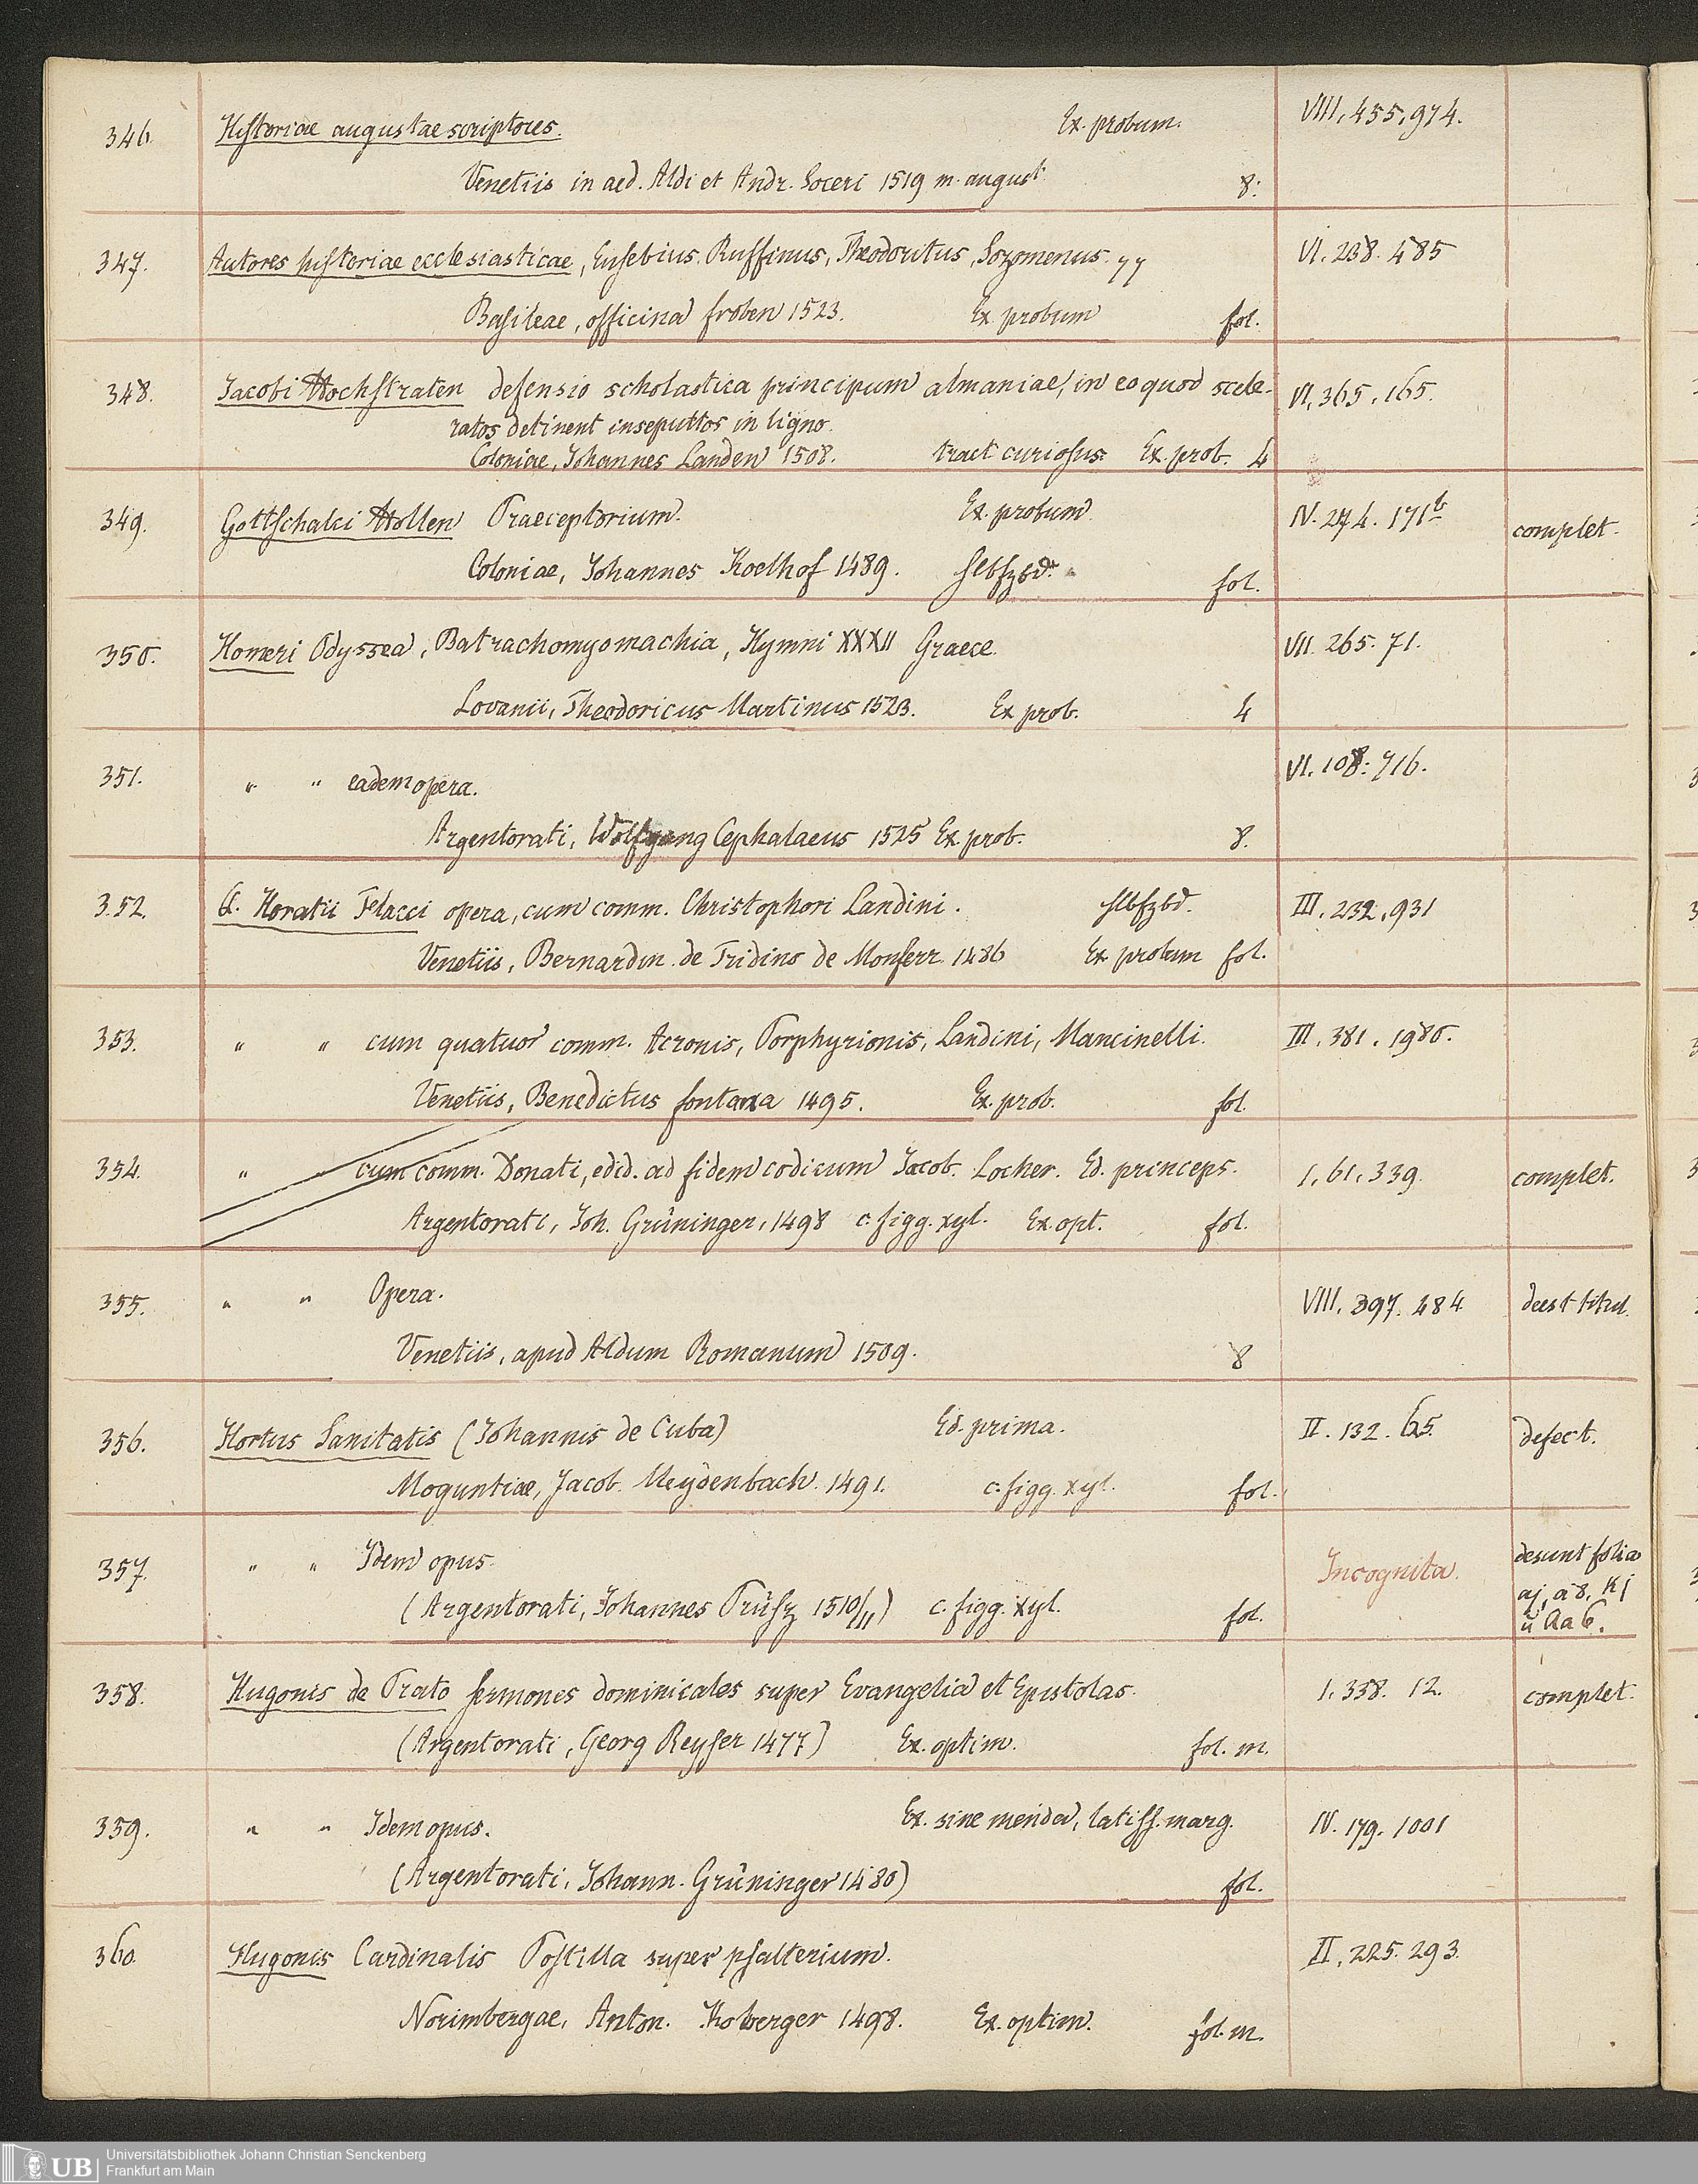 346. Historiae augustae scriptores. Ex. probum. VIII, 455, 974.
Venetiis in aed. Aldi et Andr. Soceri 1519 m. august 8.
347. Autores historiae ecclesiasticae, Eusebius. Ruffinus, Theodoritus, Sozomenus. VI. 238. 485
Basileae, officina froben 1523. Ex probum fol.
348. Jacobi Hochstraten defensio scholastica principum almaniae, in eo quod scele- VI, 365, 165.
ratos detinent insepultos in ligno.
Coloniae, Johannes Landen 1508. tract curiosus. Ex. prob. 4
349. Gottschalci Hollen Praeceptorium. Ex. probum IV. 274. 171b complet.
Coloniae, Johannes Koelhof 1489. hlbfzbd. fol.
350. Homeri Odyssea, Batrachomyomachia, Hymni XXXII Graece. VII. 265. 71.
Lovanii, Theodoricus Martinus 1523. Ex prob. 4
351. " " eadem opera. VI. 108. 716.
Argentorati, Wolfgang Cephalaeus 1525 Ex. prob. 8.
352. Q. Horatii Flacci opera, cum comm. Christophori Landini. hlbfzbd. III. 232, 931
Venetiis, Bernardin. de Tridino de Monferr. 1486 Ex probum fol.
353. " " cum quatuor comm. Acronis, Porphyrionis, Landini, Mancinelli. III. 381. 1980.
Venetiis, Benedictus fontana 1495. Ex. prob. fol.
354. " " cum comm. Donati, edid. ad fidem codicum Jacob. Locher. Ed. princeps. I, 61, 339. complet.
Argentorati, Joh. Grüninger, 1498 c. figg. xyl. Ex. opt. fol.
355. " " Opera. VIII, 397. 484 deest titul.
Venetiis, apud Aldum Romanum 1509. 8
356. Hortus Sanitatis (Johannis de Cuba) Ed. prima. II. 132. 65. defect.
Moguntiae, Jacob. Meydenbach. 1491. c. figg. xyl. fol.
357. " " Idem opus. Incognita. desunt folia
(Argentorati, Johannes Prüsz 1510/11) c. figg. xyl. fol. aj, a8, Kj
u Aa6.
358. Hugonis de Prato sermones dominicales super Evangelia et Epistolas. I. 338. 12. complet.
(Argentorati, Georg Reyser 1477) Ex. optim. fol. m.
359. " " Idem opus. Ex. sine menda, latiss. marg. IV. 179. 1001
(Argentorati, Johann. Grüninger 1480) fol.
360. Hugonis Cardinalis Postilla super psalterium. II, 225. 293.
Norimbergae, Anton. Koberger 1498. Ex. optim. fol. m.
UB Universitätsbibliothek Johann Christian Senckenberg
Frankfurt am Main